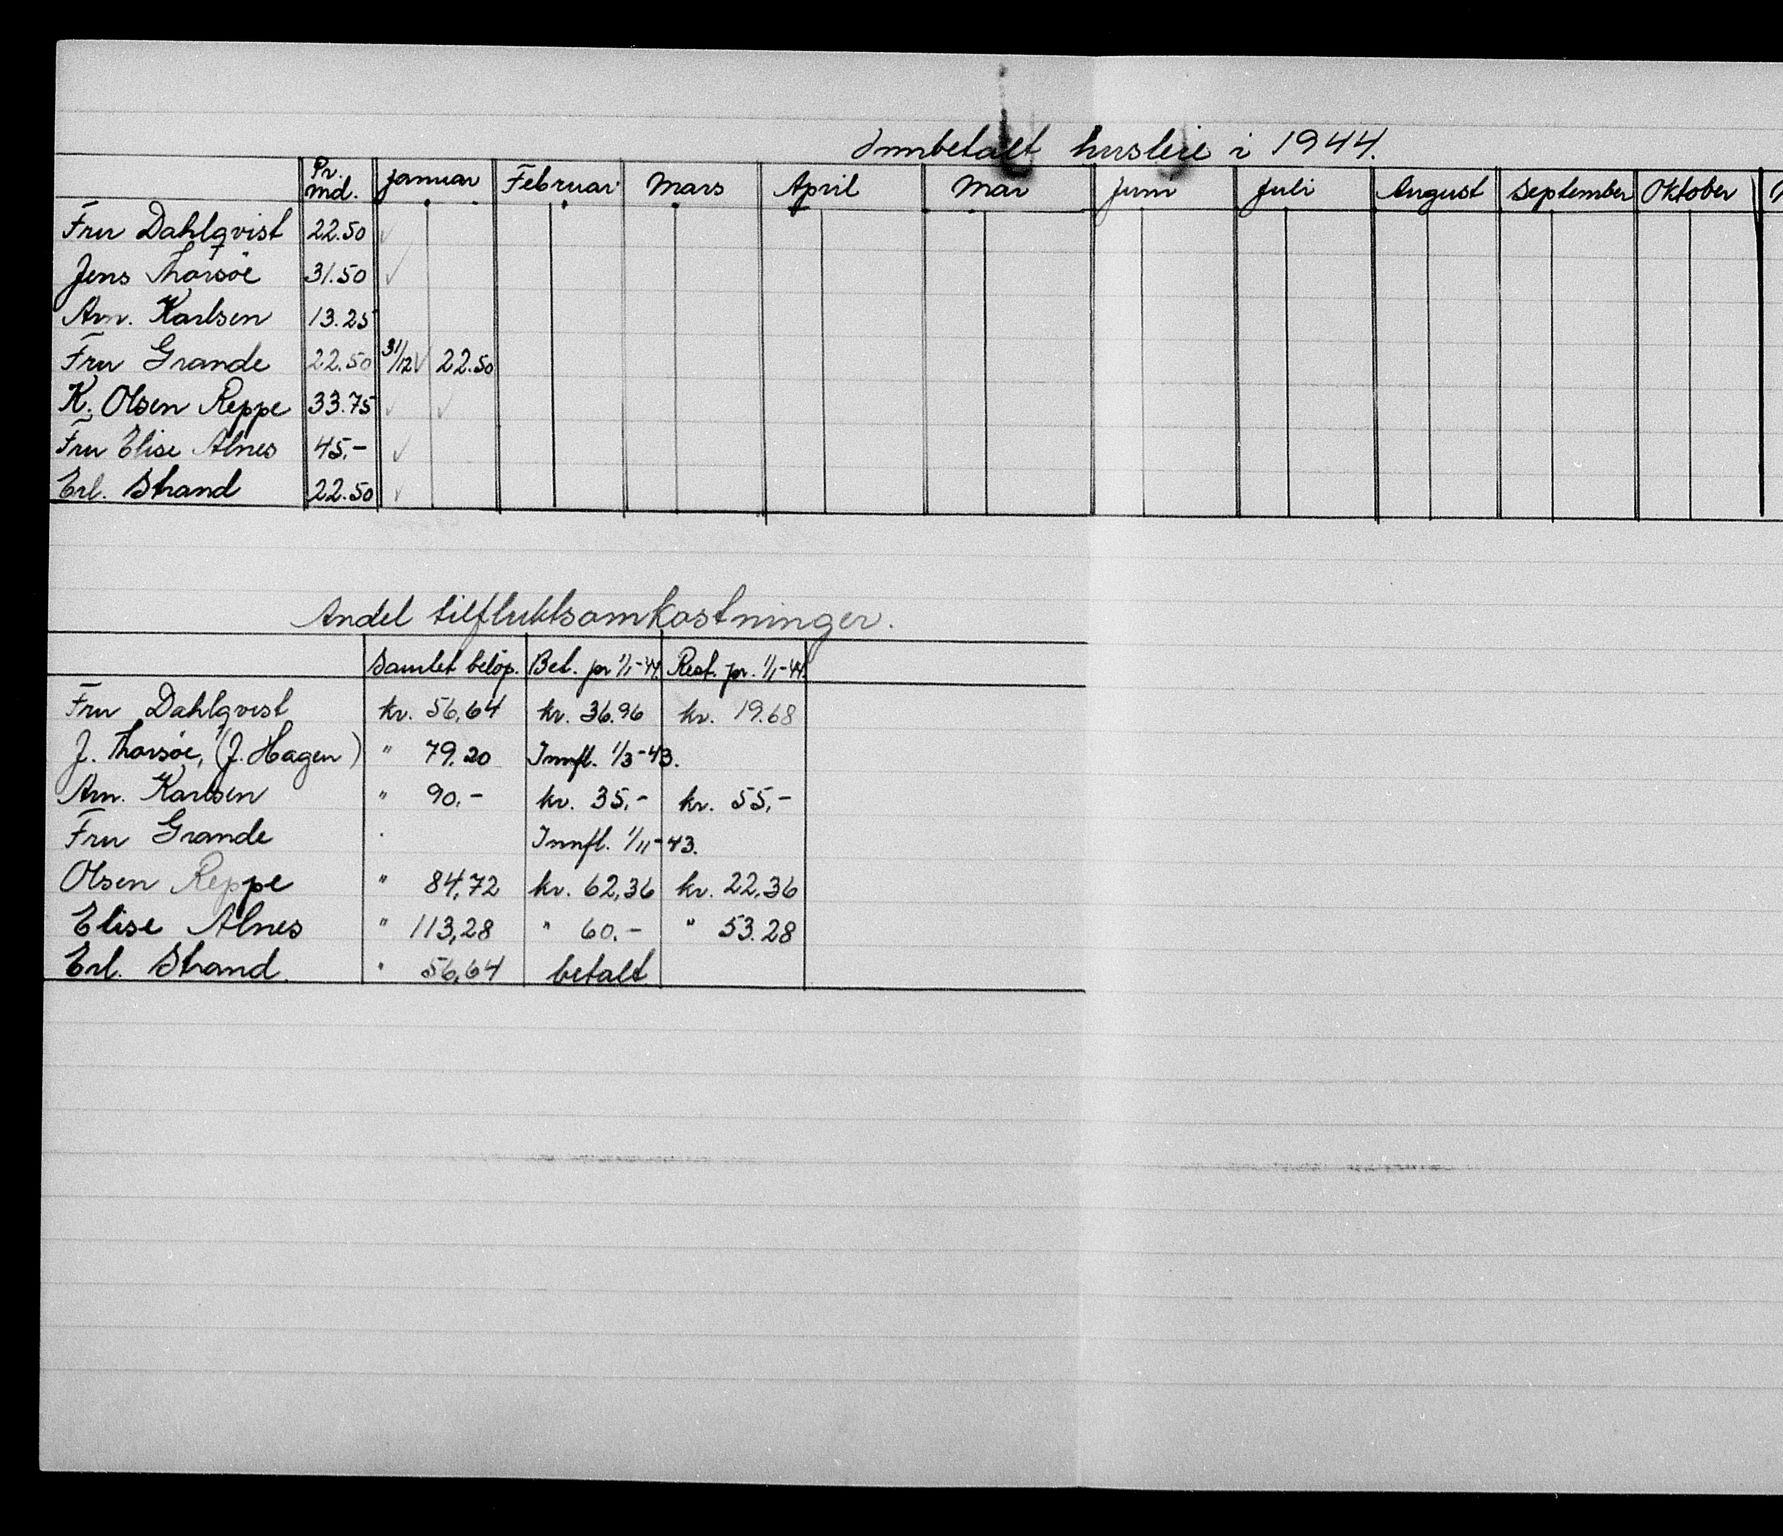 Innbetalt husleie i 1944.
Pr. md. Januar Februar Mars April Mai Juni Juli August September Oktober
Fru Dahlqvist 22.50 ✓
Jens Thorsøe 31.50 ✓
Arn. Karlsen 13.25
Fru Grande 22.50 31/12 ✓ 22.50
K. Olsen Reppe 33.75 ✓ ✓
Fru Elise Alnes 45.- ✓
Erl. Strand 22.50 ✓
Andel tilfluktsomkostninger.
Samlet beløp. Bet. pr 1/1-44. Rest. pr. 1/1-44.
Fru Dahlqvist kr. 56,64 kr. 36.96 kr. 19.68
J. Thorsøe, (J. Hagen) " 79.20 Innfl. 1/3-43.
Arn. Karlsen " 90.- kr. 35,- kr. 55,-
Fru Grande Innfl. 1/11-43.
Olsen Reppe " 84,72 kr. 62,36 kr. 22,36
Elise Alnes " 113,28 " 60.- " 53.28
Erl. Strand. " 56,64 betalt